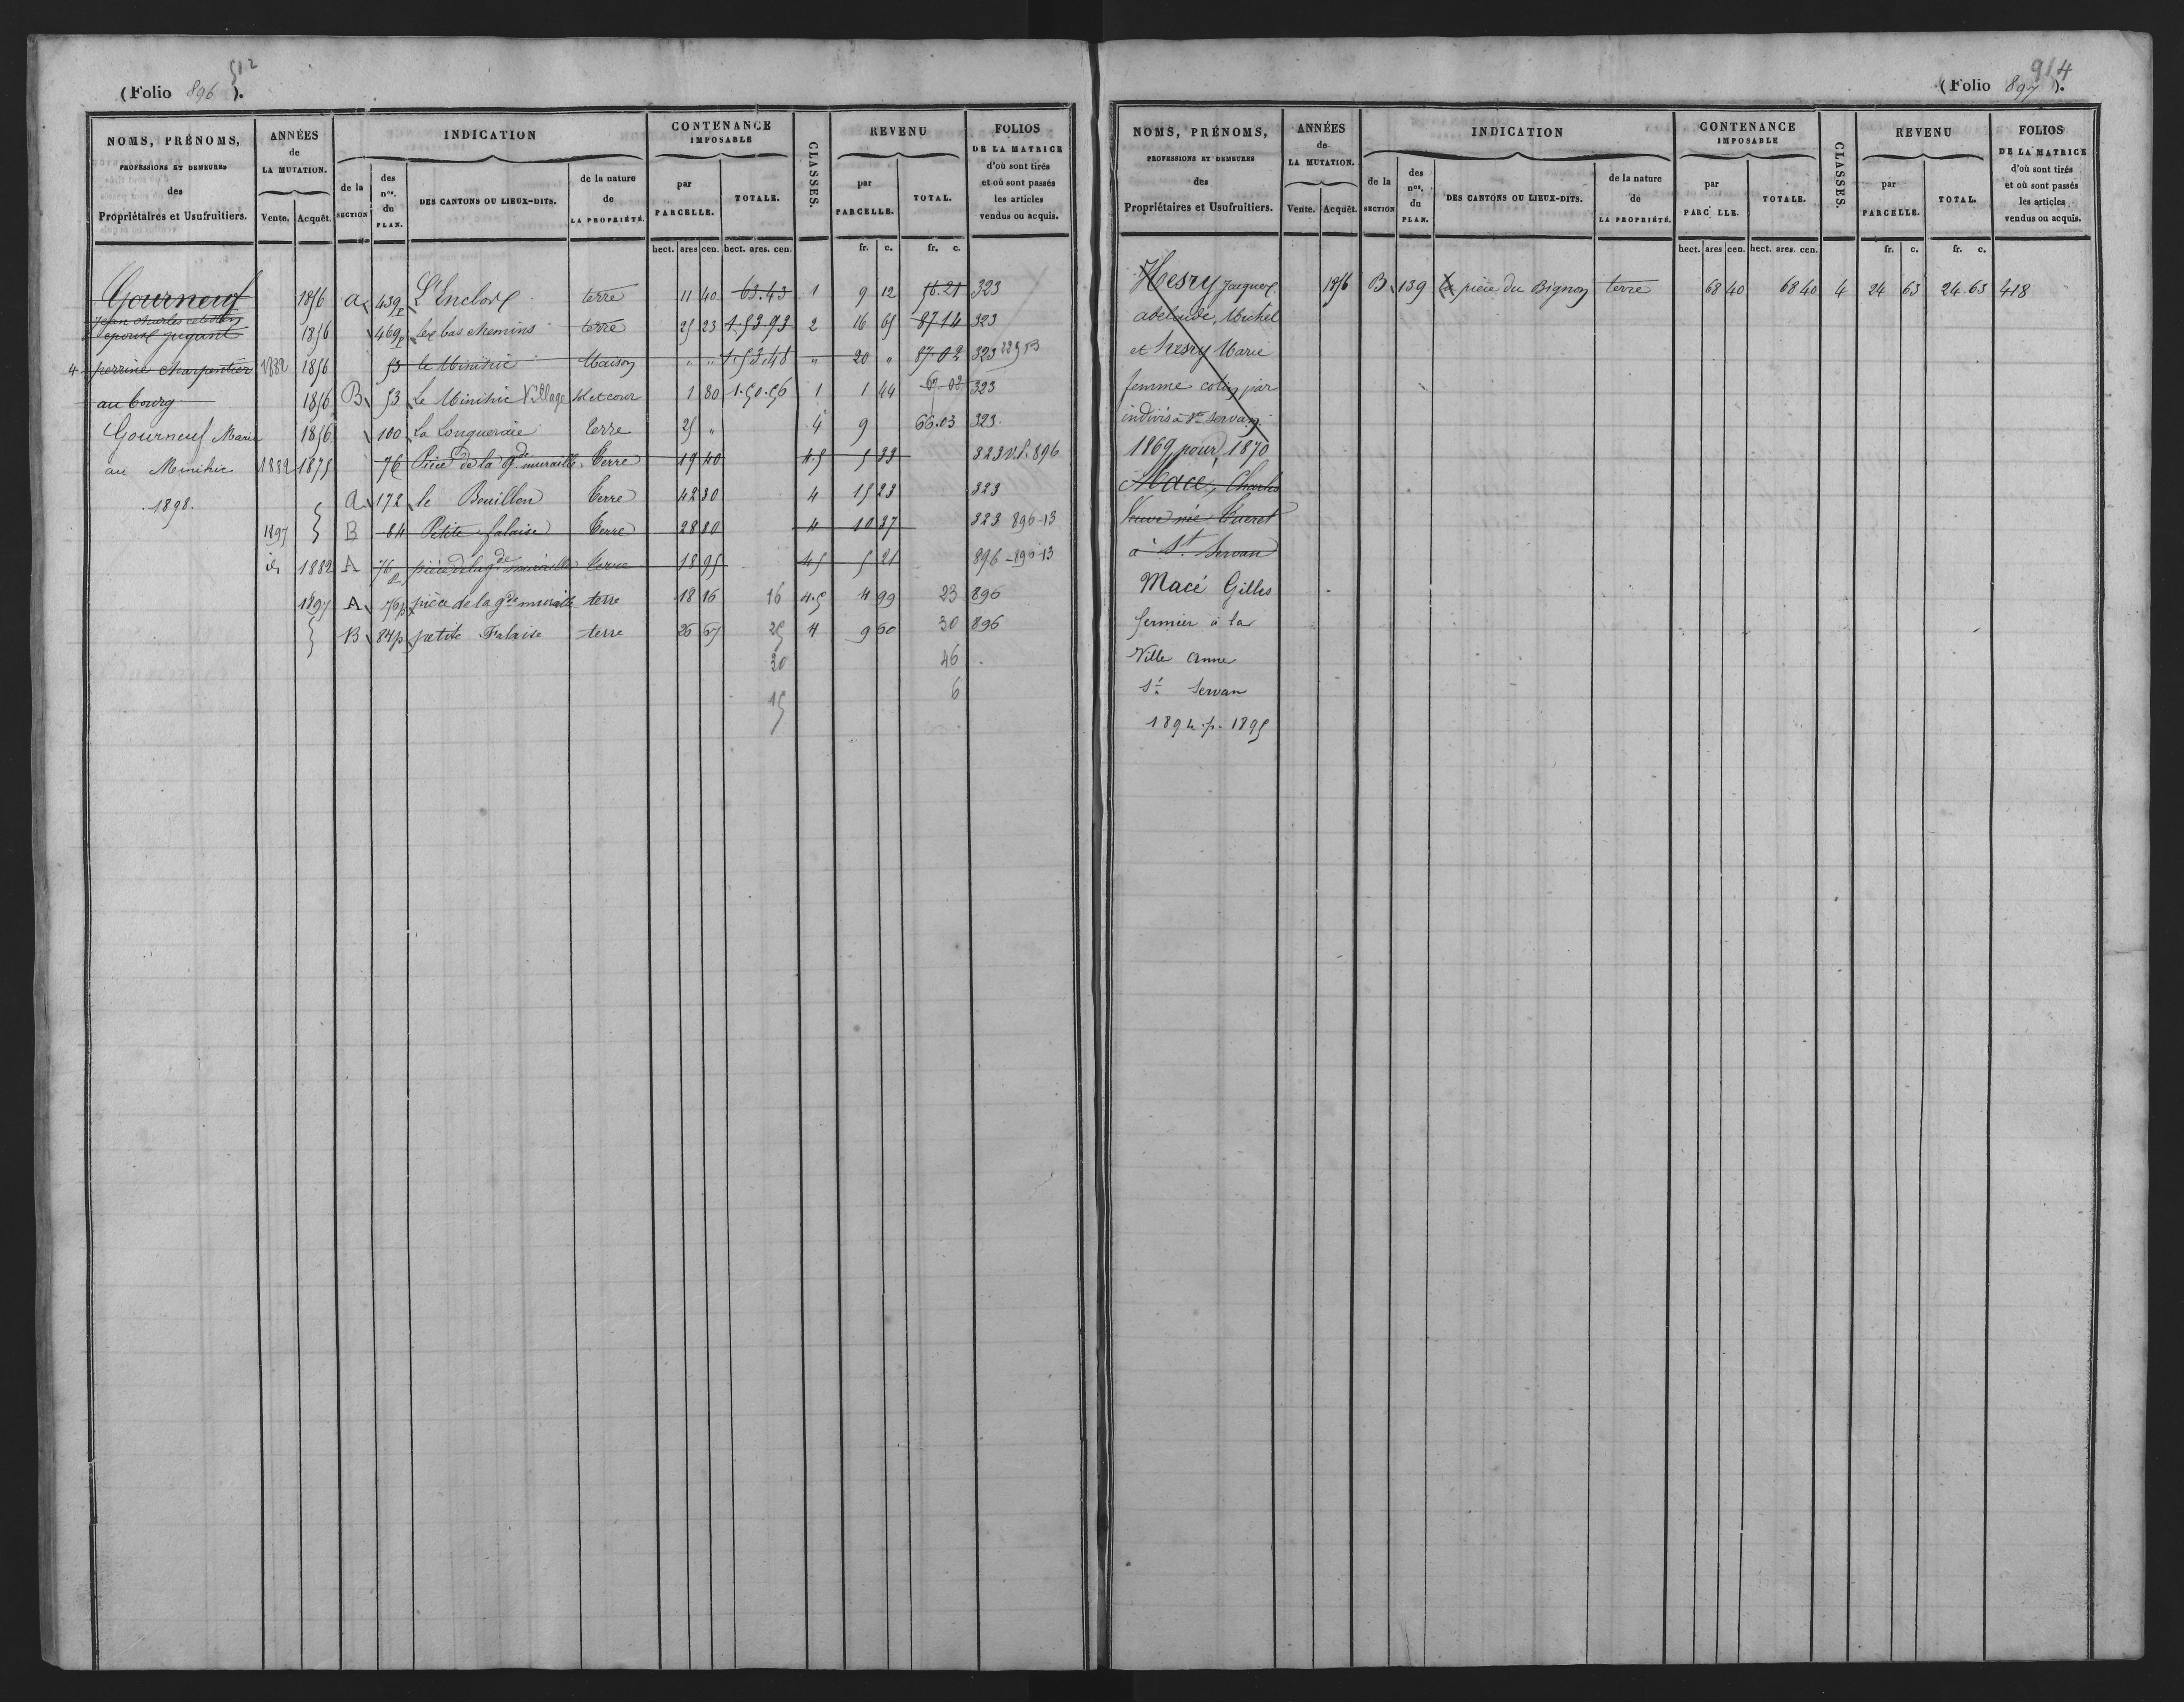 512
(Folio 896).
NOMS, PRÉNOMS, PROFESSIONS ET DEMEURES des Propriétaires et Usufruitiers.
ANNÉES de LA MUTATION. Vente. Acquêt.
INDICATION
de la SECTION
des nos. du PLAN.
DES CANTONS OU LIEUX-DITS.
de la nature de LA PROPRIÉTÉ.
CONTENANCE IMPOSABLE
par PARCELLE.
TOTALE.
CLASSES.
REVENU
par PARCELLE.
TOTAL.
FOLIOS DE LA MATRICE d'où sont tirés et où sont passés les articles vendus ou acquis.
hect. ares cen. hect. ares. cen. fr. c. fr. c.
Gourneuf 1856 a 439p L'Enclose terre 11 40 63.43 1 9 12 56.21 323
Jean Charles
épouse Jugant 1856 469p les bas chemins terre 25 23 1.53.93 2 16 65 87 14 323
4 perrine charpentier 1882 1856 53 le Minihic Maison " " 1.53.48 " 20 " 87.02 323
au bourg 1856 B 53 Le Minihic Village Sol et cour 1 80 1.50.56 1 1 44 67.02 323
Gourneuf Marie 1856 100 la Longueraie terre 25 " 4 9 66.03 323
au Minihic 1882 1875 76 Pièce de la gde muraille Terre 19 40 4.5 5 33 323 v.f. 896
1898. a 172 le Bouillon Terre 42 30 4 15 23 323
1897 B 84 Petite falaise Terre 28 80 4 10 37 323 896-13
id 1882 A 76p pièce de la gde muraille terre 18 95 4 5 5 21 896-896-13
1897 A 76p pièce de la gde muraille terre 18 16 16 4.5 4 99 23 896
B 84p petite Falaise terre 26 67 25 4 9 60 30 896
30 46
15 6
914
(Folio 897).
NOMS, PRÉNOMS, PROFESSIONS ET DEMEURES des Propriétaires et Usufruitiers.
ANNÉES de LA MUTATION. Vente. Acquêt.
INDICATION
de la SECTION
des nos. du PLAN.
DES CANTONS OU LIEUX-DITS.
de la nature de LA PROPRIÉTÉ.
CONTENANCE IMPOSABLE
par PARCELLE.
TOTALE.
CLASSES.
REVENU
par PARCELLE.
TOTAL.
FOLIOS DE LA MATRICE d'où sont tirés et où sont passés les articles vendus ou acquis.
hect. ares cen. hect. ares. cen. fr. c. fr. c.
Hesry Jacques 1856 B 139 la pièce du Bignon terre 68 40 68 40 4 24 63 24.63 418
adelaide, Michel
et hesry Marie
femme colin par
indivis à St Servan
1869 pour 1870
Macé, Charles
Veuve née
à St. Servan
Macé Gilles
fermier à la
Ville Anne
St Servan
1894.p.1895